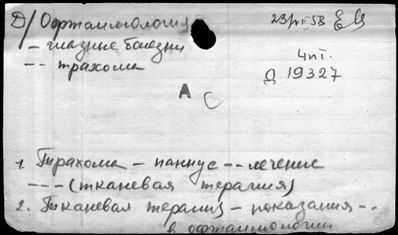 Д/ Офтальмология
23/VI-58
– глазные болезни
4 пт.
-- трахома
Д 19327
А С
1. Трахома – паннус -- лечение
--- (тканевая терапия)
2. Тканевая терапия – показания --
в офтальмологии